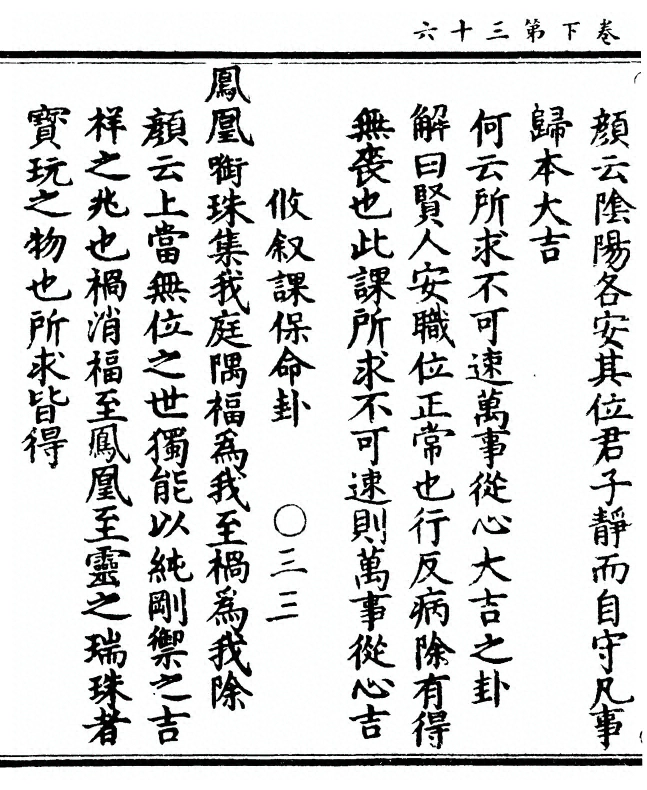 卷下第三十六
顔云陰陽各安其位君子靜而自守凡事
歸本大吉
何云所求不可速萬事從心大吉之卦
解曰賢人安職位正常也行反病除有得
無喪也此課所求不可速則萬事從心吉
攸叙課保命卦 〇三三
鳳凰衘珠集我庭隅福爲我至禍爲我除
顔云上當無位之世獨能以純剛禦之吉
祥之兆也禍消福至鳳凰至靈之瑞珠者
寳玩之物也所求皆得